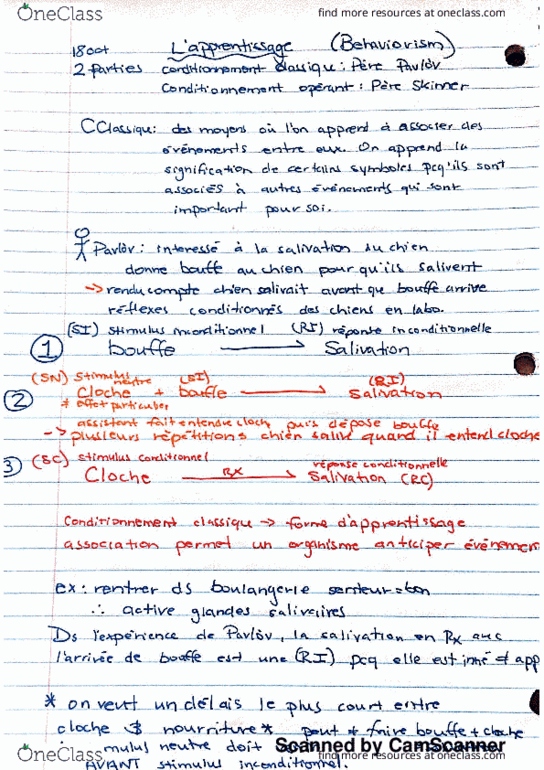 OneClass
find more resources at oneclass.com
18 oct L'apprentissage (Behaviorism)
2 Parties conditionnement classique: Père Pavlòv
Conditionnement opérant: Père Skinner
CClassique: des moyens où l'on apprend à associer des
événements entre eux. On apprend la
signification de certains symboles pcq'ils sont
associés à autres événements qui sont
important pour soi.
Pavlòv: interessé à la salivation du chien
donne bouffe au chien pour qu'ils salivent
→ rendu compte chien salivait avant que bouffe arrive
réflexes conditionnés des chiens en labo.
(SI) stimulus inconditionnel (RI) réponse inconditionnelle
1 bouffe → Salivation
(SN) Stimulus neutre (SI) (RI)
2 Cloche + bouffe → Salivation
* effet particulier
assistant fait entendre cloch puis dépose bouffe
-> plusieurs répétitions chien salive quand il entend cloche
3 (SC) stimulus conditionnel réponse conditionnelle
Cloche Rx → Salivation (RC)
Conditionnement classique → forme d'apprentissage
association permet un organisme anticiper événemen
ex: rentrer ds boulangerie senteur=bon
∴ active glandes salivaires
Ds l'expérience de Pavlòv, la salivation en Rx avec
l'arrivée de bouffe est une (RI) pcq elle est inné ≠ app
* on veut un délais le plus court entre
cloche & nourriture * peut ≠ faire bouffe + cloche
mulus neutre doit
AVANT stimulus inconditionnel.
Scanned by CamScanner
OneClass
find more resources at oneclass.com